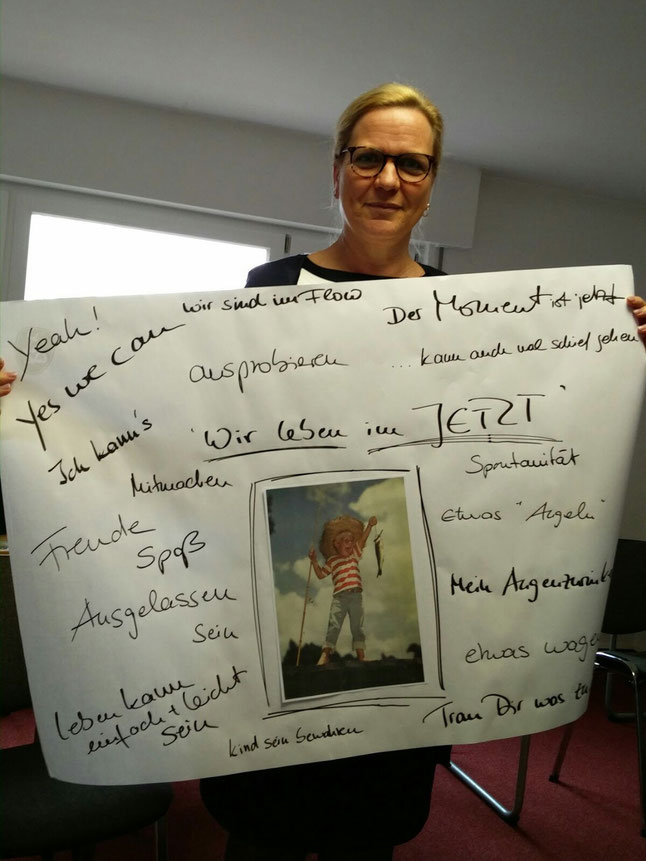 Yeah!
Yes we can
Ich kann's
wir sind im Flow
ausprobieren
Der Moment ist jetzt
... kann auch mal schief gehen
'Wir leben im JETZT'
Mitmachen
Freude
Spaß
Ausgelassen
sein
Leben kann
einfach + leicht
sein
Kind sein bewahren
Spontanität
etwas "Angeln"
Mein
etwas wagen
Trau Dir was zu